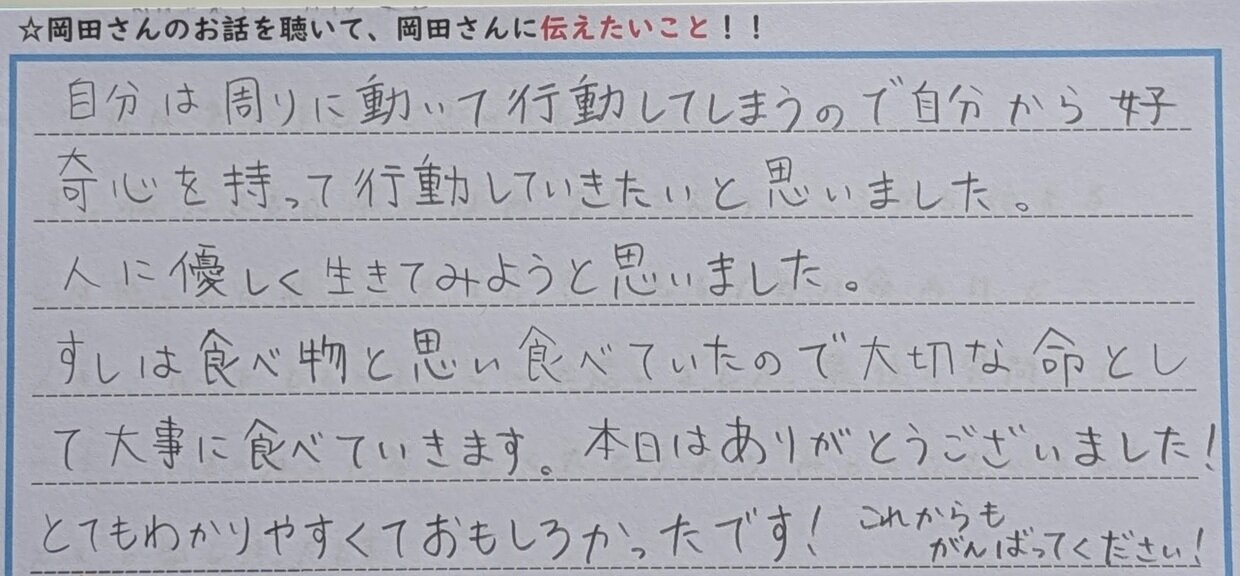 ☆岡田さんのお話を聴いて、岡田さんに伝えたいこと！！
自分は周りに動いて行動してしまうので自分から好
奇心を持って行動していきたいと思いました。
人に優しく生きてみようと思いました。
すしは食べ物と思い食べていたので大切な命とし
て大事に食べていきます。本日はありがとうございました！
とてもわかりやすくておもしろかったです！これからも
がんばってください！